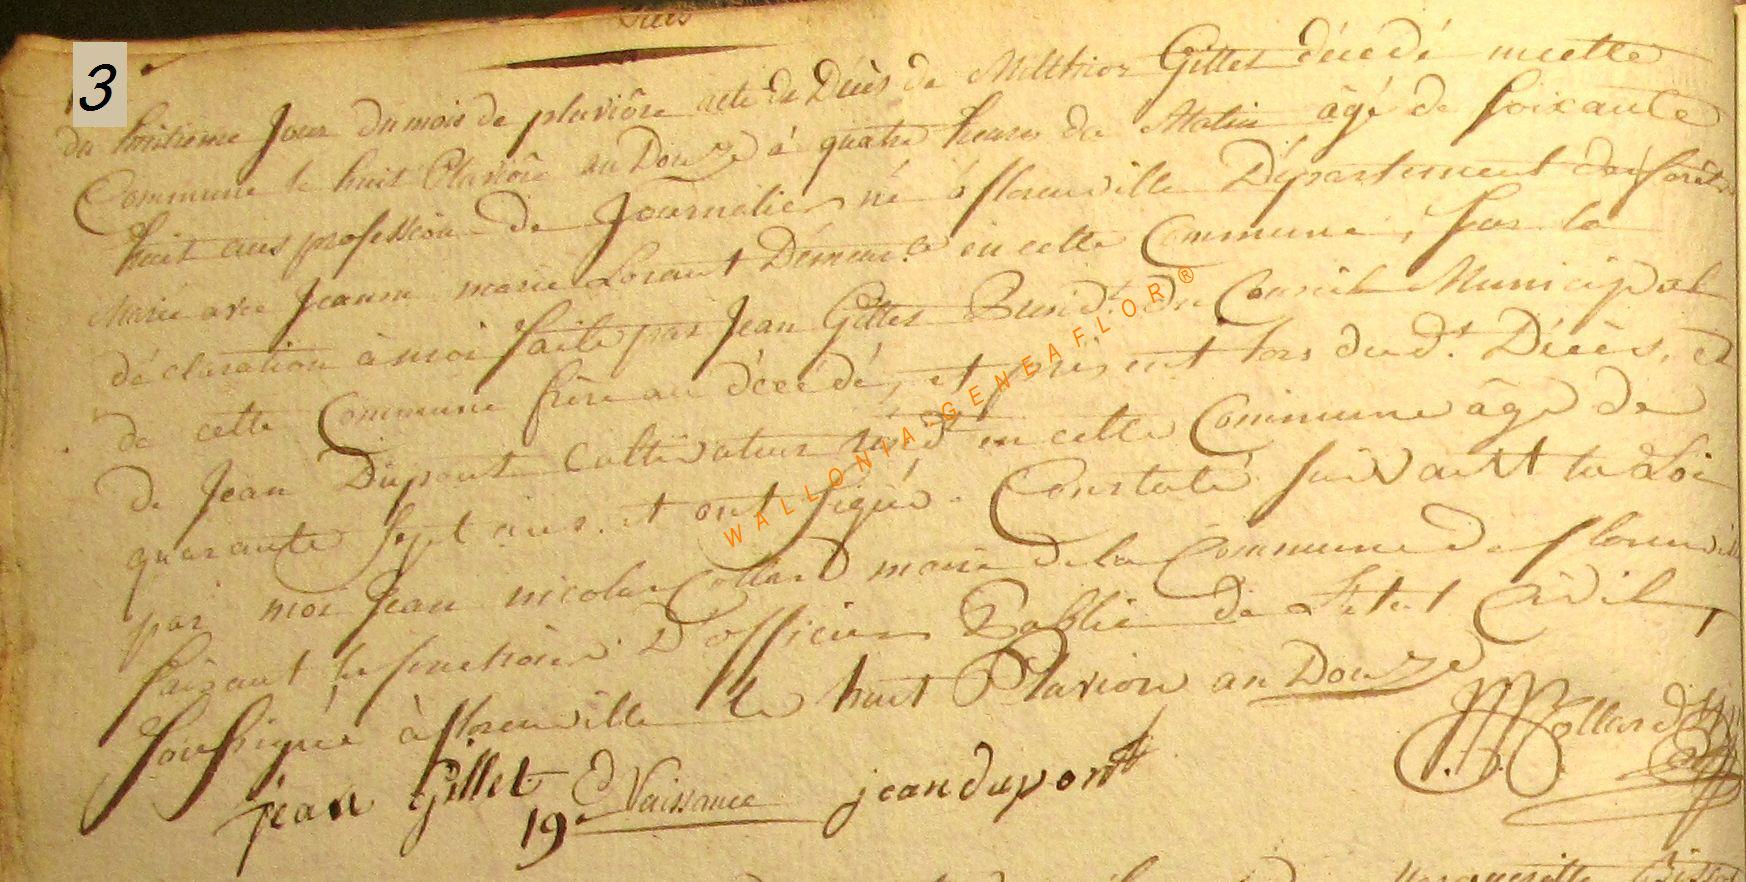 Décès
3
du huitieme Jour du mois de pluviôse acte de Décès de Gillet décédé en cette
Commune le huit Pluviose an Douze à quatre heures du Matin âgé de Soixante
huit ans profession de Journalier né à florenville Département des forêts
Marié avec Jeanne marie Lorant en cette Commune, Sur la
déclaration à moi faite par Jean Gillet du Conseil Municipal
de cette Commune frère au décédé, et présent lors du dt. Décès, et
de Jean Dupont Cultivateur résdt en cette Commune âgé de
quarante Sept ans. et ont Signé. Constaté Suivant la Loi
par moi Jean nicolas Collard maire de la Commune de florenville
faisant les fonctions D'officier Public de L'Etat Civil,
Soussigné à florenville le huit Pluviose an Douze
JN Collard
jean Gillet
jean dupont
19e Naissance
WALLONIA-GENEAFLOR®